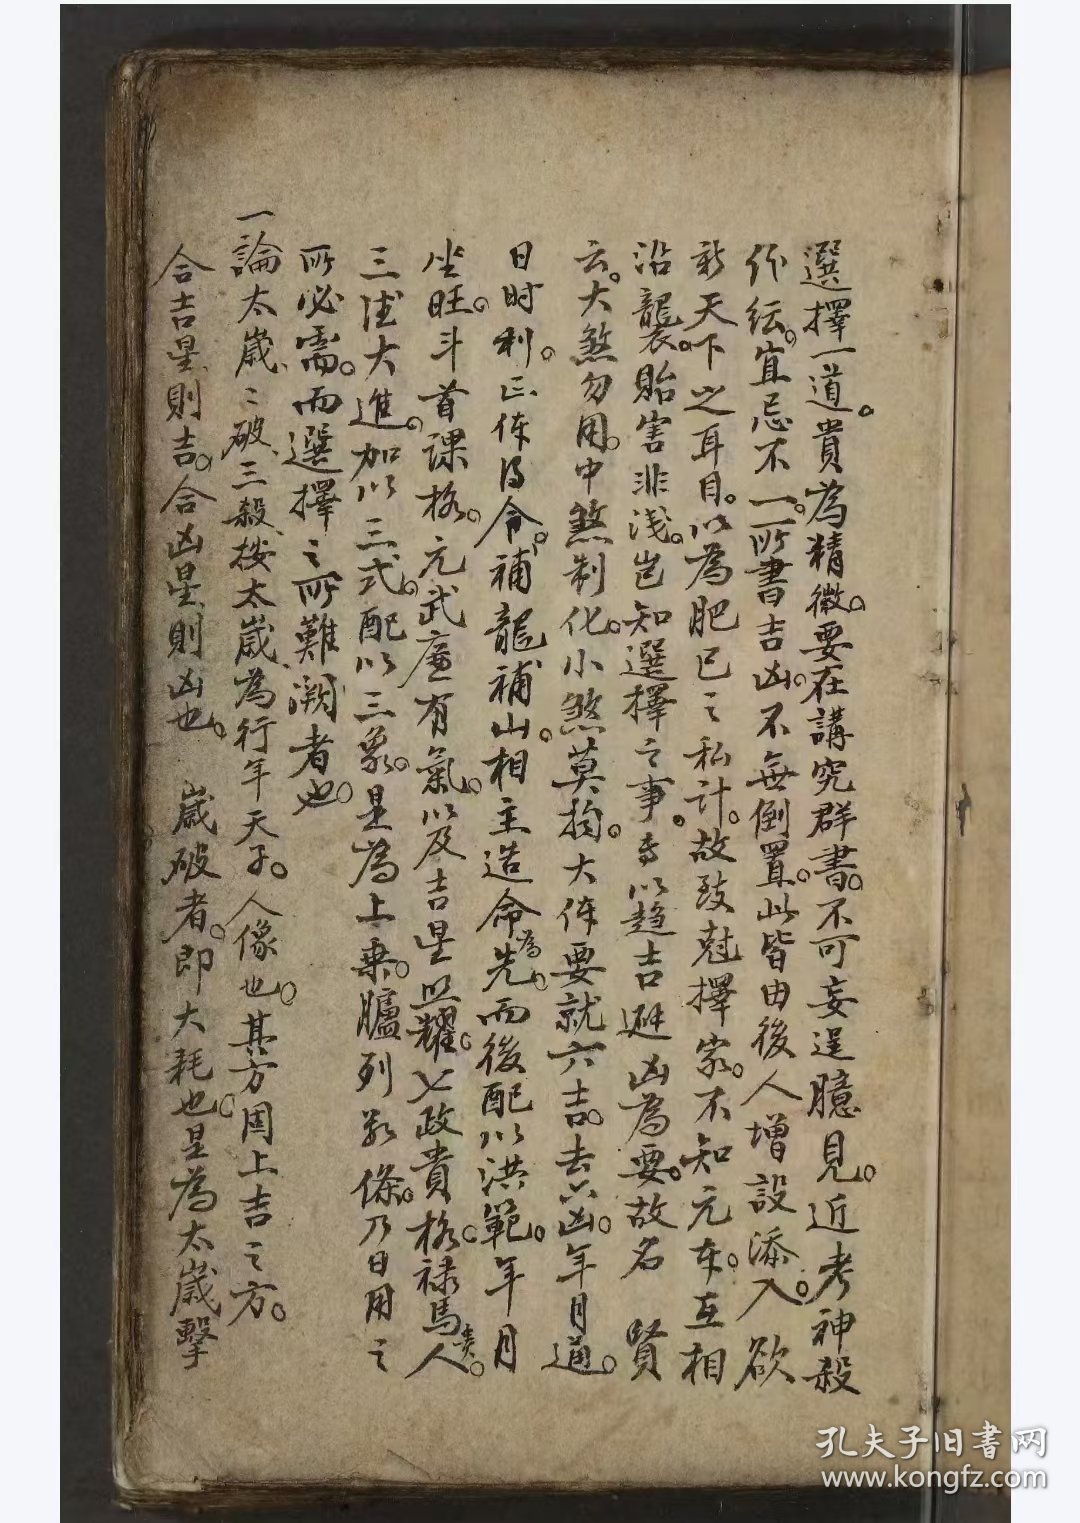 選擇一道。貴為精微。要在講究群書。不可妄逞臆見。近考神殺
紛紜。宜忌不一。所書吉凶。不無倒置。此皆由後人增設添入。欲
新天下之耳目。以為肥已之私計。故致尅擇家。不知元本。互相
沿襲。貽害非淺。豈知選擇之事。專以趨吉避凶為要。故名賢
云。大煞勿用。中煞制化。小煞莫拘。大体要就六吉。去六凶。年月通。
日时利。正体得令。補龍補山。相主造命為先。而後配以洪範。年月
坐旺。斗首課格。元武廉有氣。以及吉星照耀。七政貴格。禄馬貴人。
三德大進。加以三式。配以三象。是為上乘。臚列於條。乃日用之
所必需。而選擇之所難測者也。
一論太歲、歲破、三殺、按太歲為行年天子。人像也。其方固上吉之方。
合吉星則吉。合凶星則凶也。 歲破者。即大耗也。是為太歲擊
孔夫子旧書网
www.kongfz.com